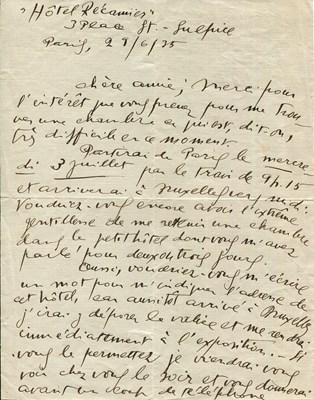 "Hôtel Récamier"
3 Place St.-Sulpice
Paris, 29/6/35
Chère amie, Merci pour
l'intérêt que vous prenez pour me trou-
ver une chambre ce qui est, dit-on,
très difficile en ce moment.
Partirai de Paris le mercre-
di 3 juillet par le train de 9h.15
et arriverai à Bruxelles midi.
Voudriez-vous encore avoir l'extrême
gentillesse de me retenir une chambre
dans le petit hôtel dont vous m'avez
parlé pour deux ou trois jours.
Aussi, voudriez-vous m'écrire
un mot pour m'indiquer l'adresse de
cet hôtel, car aussitôt arrivé à Bruxelles
j'irai y déposer la valise et me rendrai
immédiatement à l'exposition. Si
vous le permettez je viendrai vous
voir chez vous le soir et vous donnerai
avant un coup de téléphone